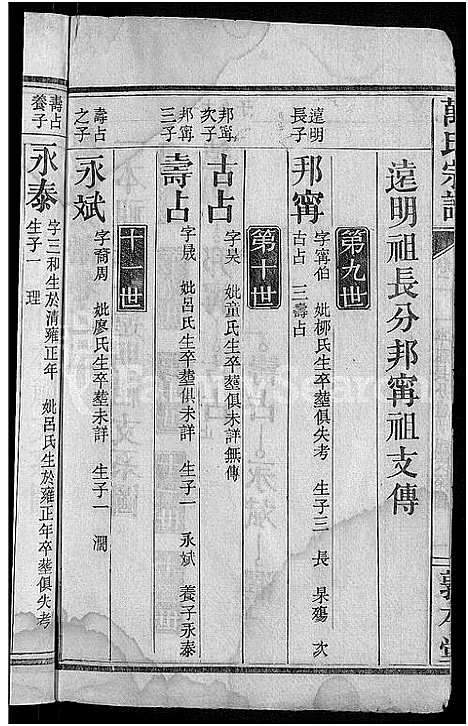 萬氏宗譜
敦本堂
遠明祖長分邦甯祖支傳
第九世
遠明
長子
邦甯
字甯伯 妣柳氏生卒葬俱失考 生子三 長杲殤 次
古占 三壽占
第十世
邦甯
次子
古占
字昊 妣童氏生卒葬俱未詳無傳
邦甯
三子
壽占
字晟 妣呂氏生卒葬俱未詳 生子一 永斌 養子永泰
十一世
壽占
之子
永斌
字裔周 妣廖氏生卒葬未詳 生子一 瀾
壽占
養子
永泰
字三和生於清雍正年 妣呂氏生於雍正年卒葬俱失考
生子一 理